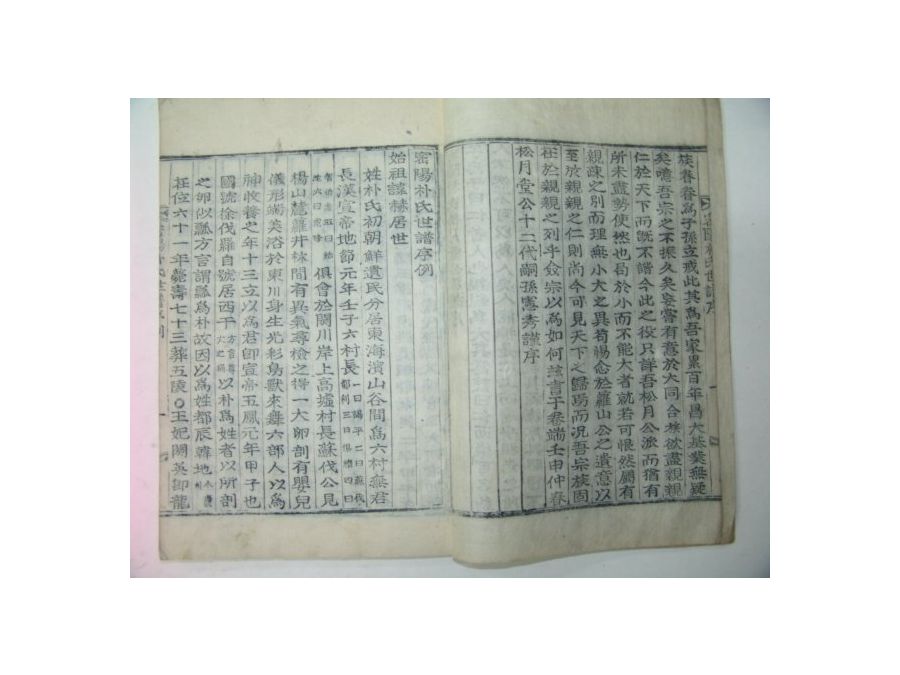 族眷眷爲子孫立戒此其爲吾家累百年昌大基業無疑
矣噫吾宗之不振久矣嘗有意於大同合葉欲盡親親
仁於天下而旣不譜今此之役只詳吾松月公派而猶有
所未盡勢使然也局於小而不能大者就若可恨然屬有
親疎之别而理無小大之異苟惕念於羅山公之遺意以
至於親親之仁則尚今可見天下之歸而况吾宗族固
在於親親之列乎僉宗以爲如何玆書于卷端壬申仲春
松月堂公十二代嗣孫憲秀謹序
密陽朴氏世譜序例
始祖諱赫居世
姓朴氏初朝鮮遺民分居東海濱山谷間爲六村無君
長漢宣帝地節元年壬子六村長一曰楊平二曰蘇伐都利三曰俱禮四曰
俱會於閼川岸上高墟村長蘇伐公見
楊山麓羅井林間有異氣尋檢之得一大卵剖有嬰兒
儀形端美浴於東川身生光彩鳥獸來舞六部人以爲
神收養之年十三立以爲君卽宣帝五鳳元年甲子也
國號徐伐羅自號居西干方言尊大之稱以朴爲姓者以所剖
之卵似瓢方言謂瓢爲朴故因以爲姓都辰韓地
在位六十一年薨壽七十三葬五陵○王妃閼英卽龍